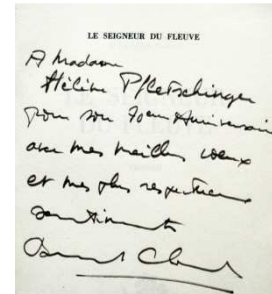 LE SEIGNEUR DU FLEUVE
A Madame
Hélène Pfletschinger
pour son 70em Anniversaire
avec mes meilleurs voeux
et mes plus respectueux
sentiments